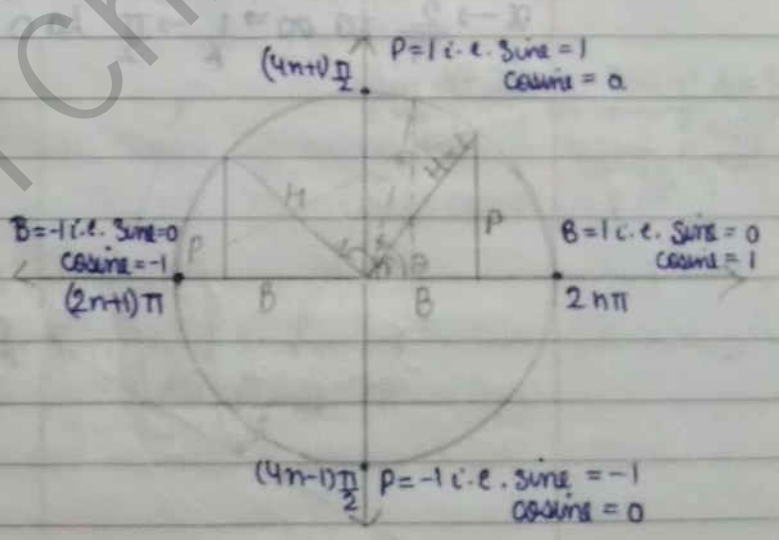 (4n+1)π/2
P=1 i.e. Sine = 1
cosine = 0
H
H=1
B=-1 i.e. Sine=0
cosine=-1
(2n+1)π
P
P
B=1 i.e. Sine = 0
cosine = 1
2nπ
θ
B
B
(4n-1)π/2
P=-1 i.e. Sine = -1
cosine = 0